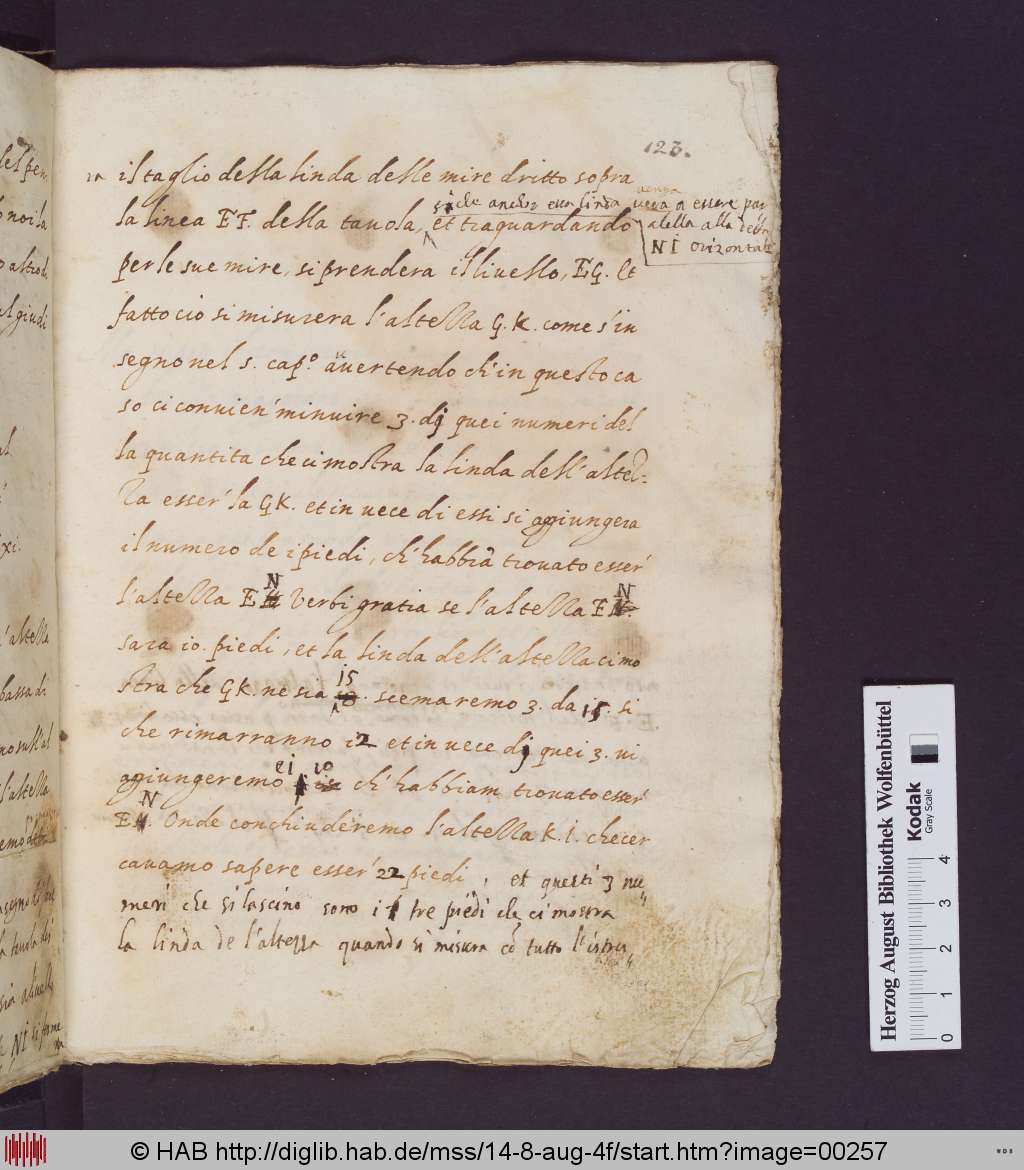 123.
il taglio della linda delle mire dritto sopra
la linea EF. della tauola, et traguardando
si che anchor essa linda uenga a essere par
alella alla detta
NI orizontale
per le sue mire, si prendera il liuello, EG. Et
fatto cio si misurera l'altezza G.K. come s'in
segno nel 5. cap.o auertendo ch'in questo ca
so ci conuien' minuire 3. di quei numeri del
la quantita che ci mostra la linda dell'altez-
za esser' la GK. et in uece di essi si aggiungera
il numero de i piedi, ch'habbia trouato esser'
l'altezza EN Verbi gratia se l'altezza EN.
sara 10. piedi, et la linda dell'altezza ci mo
stra che GK. ne sia 15. scemaremo 3. da 15. si
che rimarranno 12 et in uece di quei 3. ui
aggiungeremo 10 ch'habbiam trouato esser'
EN. Onde conchiuderemo l'altezza K.I. che cer
cauamo sapere esser' 22 piedi, et questi 3 nu
meri che si lascino sono i tre piedi che ci mostra
la linda de l'altezza quando si misura cō tutto l'istru
Herzog August Bibliothek Wolfenbüttel
Kodak
Gray Scale
0 1 2 3 4
© HAB http://diglib.hab.de/mss/14-8-aug-4f/start.htm?image=00257